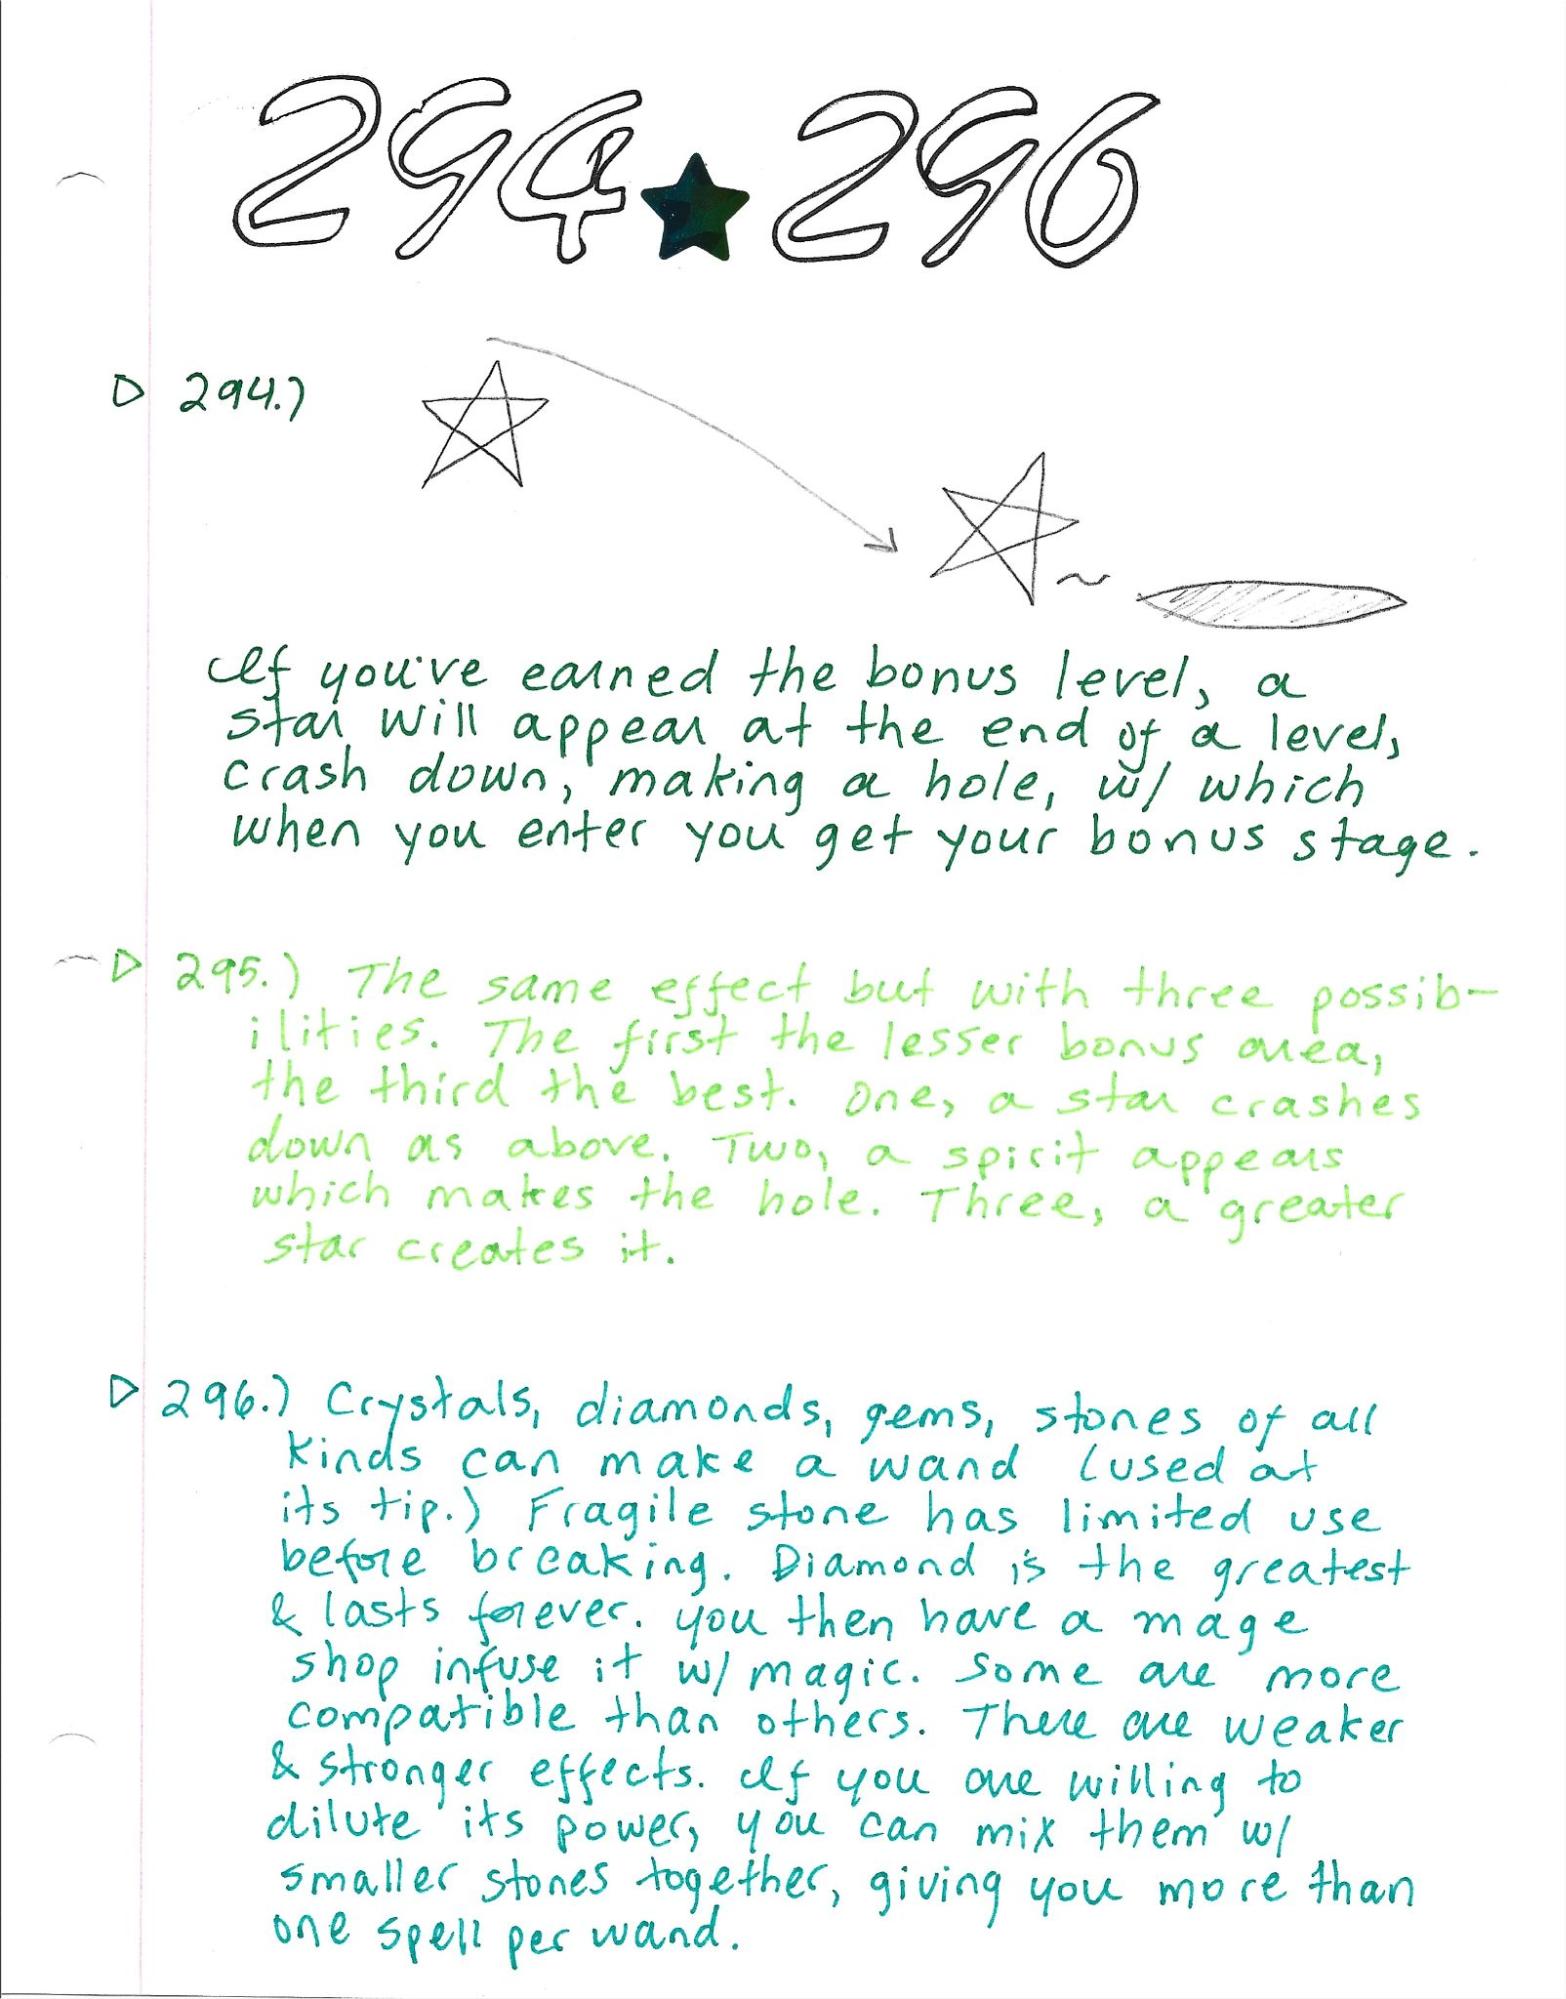 294 ★ 296
▷ 294.)
If you've earned the bonus level, a
star will appear at the end of a level,
crash down, making a hole, w/ which
when you enter you get your bonus stage.
▷ 295.) The same effect but with three possib-
ilities. The first the lesser bonus area,
the third the best. One, a star crashes
down as above. Two, a spirit appears
which makes the hole. Three, a greater
star creates it.
▷ 296.) Crystals, diamonds, gems, stones of all
kinds can make a wand (used at
its tip.) Fragile stone has limited use
before breaking. Diamond is the greatest
& lasts forever. you then have a mage
shop infuse it w/ magic. Some are more
compatible than others. There are weaker
& stronger effects. If you are willing to
dilute its power, you can mix them w/
smaller stones together, giving you more than
one spell per wand.